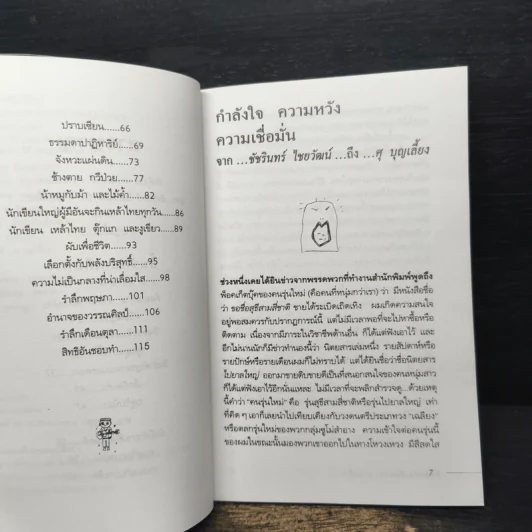 ปราบเซียน......66
ธรรมดาปาฏิหาริย์......69
จังหวะแผ่นดิน......73
ช้างตาย กวีป่วย......77
น้าหมูกับม้า และไม้ค้ำ......82
นักเขียนใหญ่ผู้มีอันจะกินเหล้าไทยทุกวัน......86
นักเขียน เหล้าไทย ตุ๊กแก และงูเขียว......89
ผับเพื่อชีวิต......93
เลือกตั้งกับพลังบริสุทธิ์......95
ความไม่เป็นกลางที่น่าเลื่อมใส......98
รำลึกพฤษภา......101
อำนาจของวรรณศิลป์......106
รำลึกเดือนตุลา......111
สิทธิอันชอบทำ......115
กำลังใจ ความหวัง
ความเชื่อมั่น
จาก ...ชัชรินทร์ ไชยวัฒน์ ...ถึง ...ศุ บุญเลี้ยง
ช่วงหนึ่งเคยได้ยินข่าวจากพรรคพวกที่ทำงานสำนักพิมพ์พูดถึง
พ็อคเก็ตบุ๊คของคนรุ่นใหม่ (คือคนที่หนุ่มกว่าเรา) ว่า มีหนังสือชื่อ
ว่า ขอชื่อสุธีสามสี่ชาติ ขายได้ระเบิดเถิดเทิง ผมเกิดความสนใจ
อยู่พอสมควรกับปรากฏการณ์นี้ แต่ไม่มีเวลาพอที่จะไปหาซื้อหรือ
ติดตาม เนื่องจากมีภาระในวิชาชีพด้านอื่น ก็ได้แต่ฟังเอาไว้ และ
อีกไม่นานนักก็มีข่าวทำนองนี้ว่า นิตยสารเล่มหนึ่ง รายสัปดาห์หรือ
รายปักษ์หรือรายเดือนผมก็ไม่ทราบได้ แต่ได้ยินชื่อว่าชื่อนิตยสาร
ไปยาลใหญ่ ออกมาขายดิบขายดีเป็นที่สนอกสนใจของคนหนุ่มสาว
ก็ได้แต่ฟังเอาไว้อีกนั่นแหละ ไม่มีเวลาที่จะพลิกสำรวจดู...ด้วยเหตุ
นี้คำว่า "คนรุ่นใหม่" คือ รุ่นสุธีสามสี่ชาติหรือรุ่นไปยาลใหญ่ เท่า
ที่คิด ๆ เอาก็เลยนำไปเทียบเคียงกับวงดนตรีประเภทวง "เฉลียง"
หรือตลกรุ่นใหม่ของพวกกลุ่มซูโม่สำอาง ความเข้าใจต่อคนรุ่นนี้
ของผมในขณะนั้นมองพวกเขาออกไปในทางโหวงเหวง มีสีสดใส
7